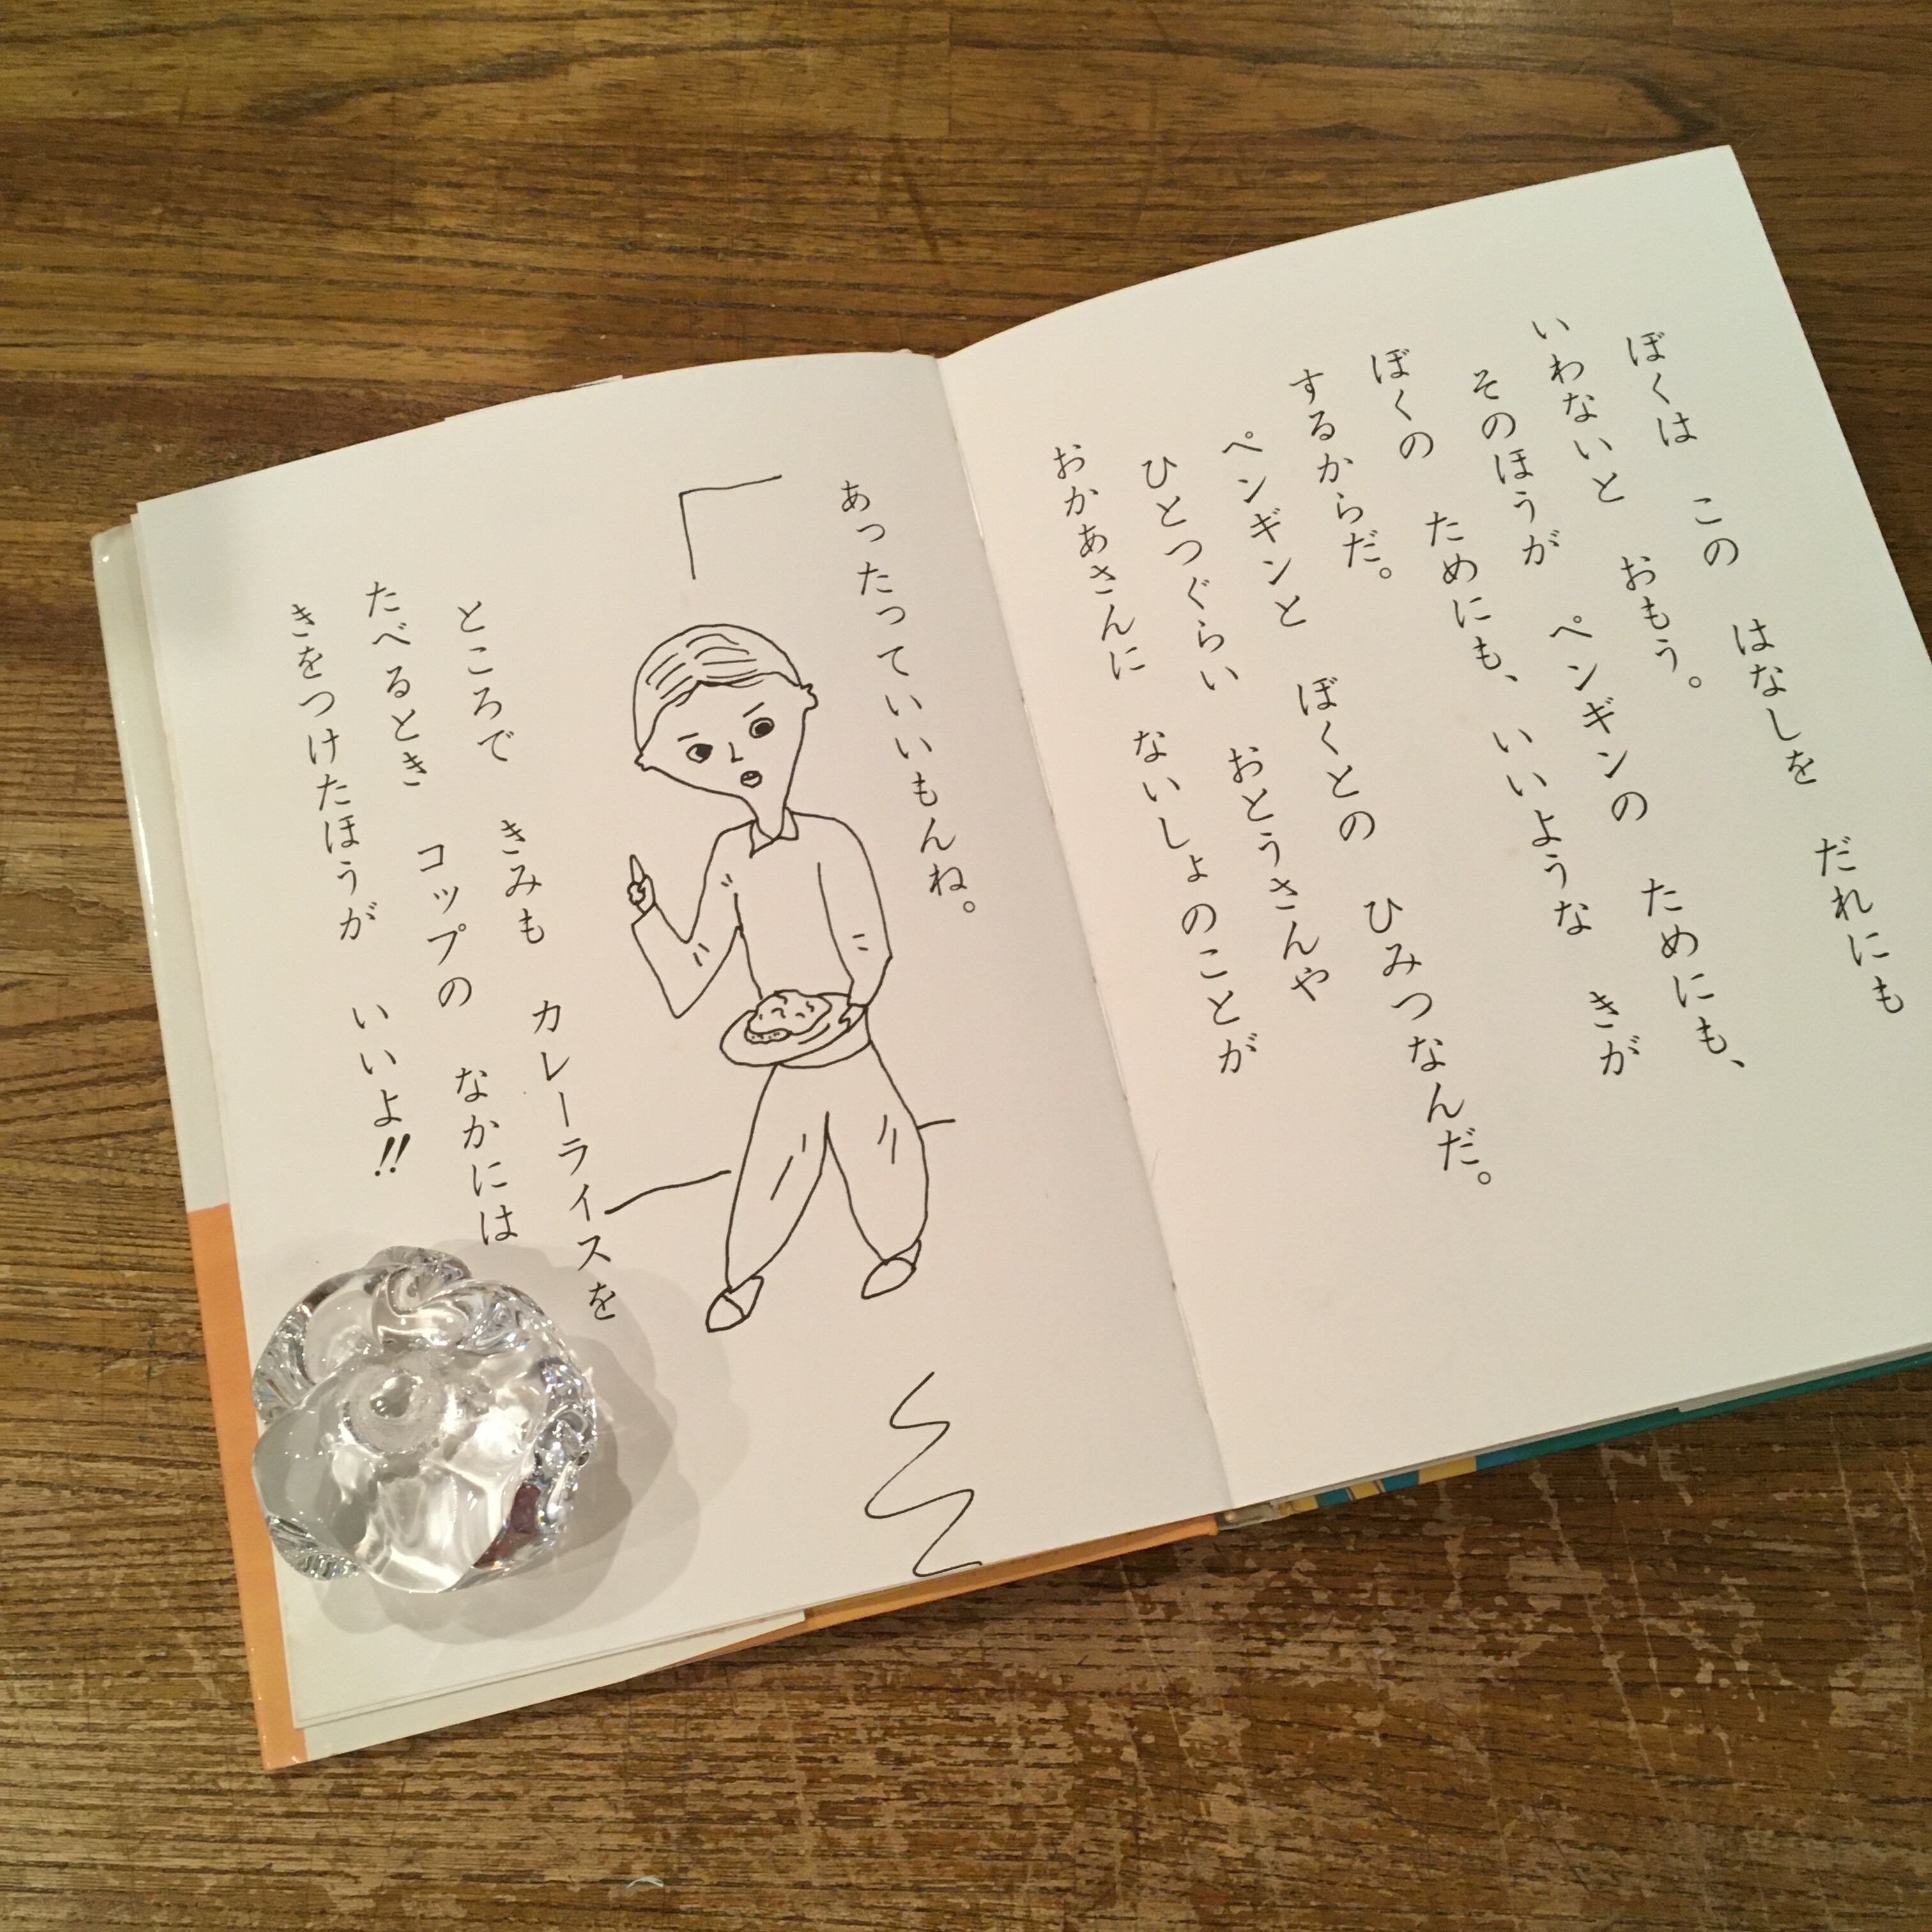 ぼくは　この　はなしを　だれにも
いわないと　おもう。
そのほうが　ペンギンの　ためにも、
ぼくの　ためにも、いいような　きが
するからだ。
ペンギンと　ぼくとの　ひみつなんだ。
ひとつぐらい　おとうさんや
おかあさんに　ないしょのことが
あったっていいもんね。
ところで　きみも　カレーライスを
たべるとき　コップの　なかには
きをつけたほうが　いいよ!!